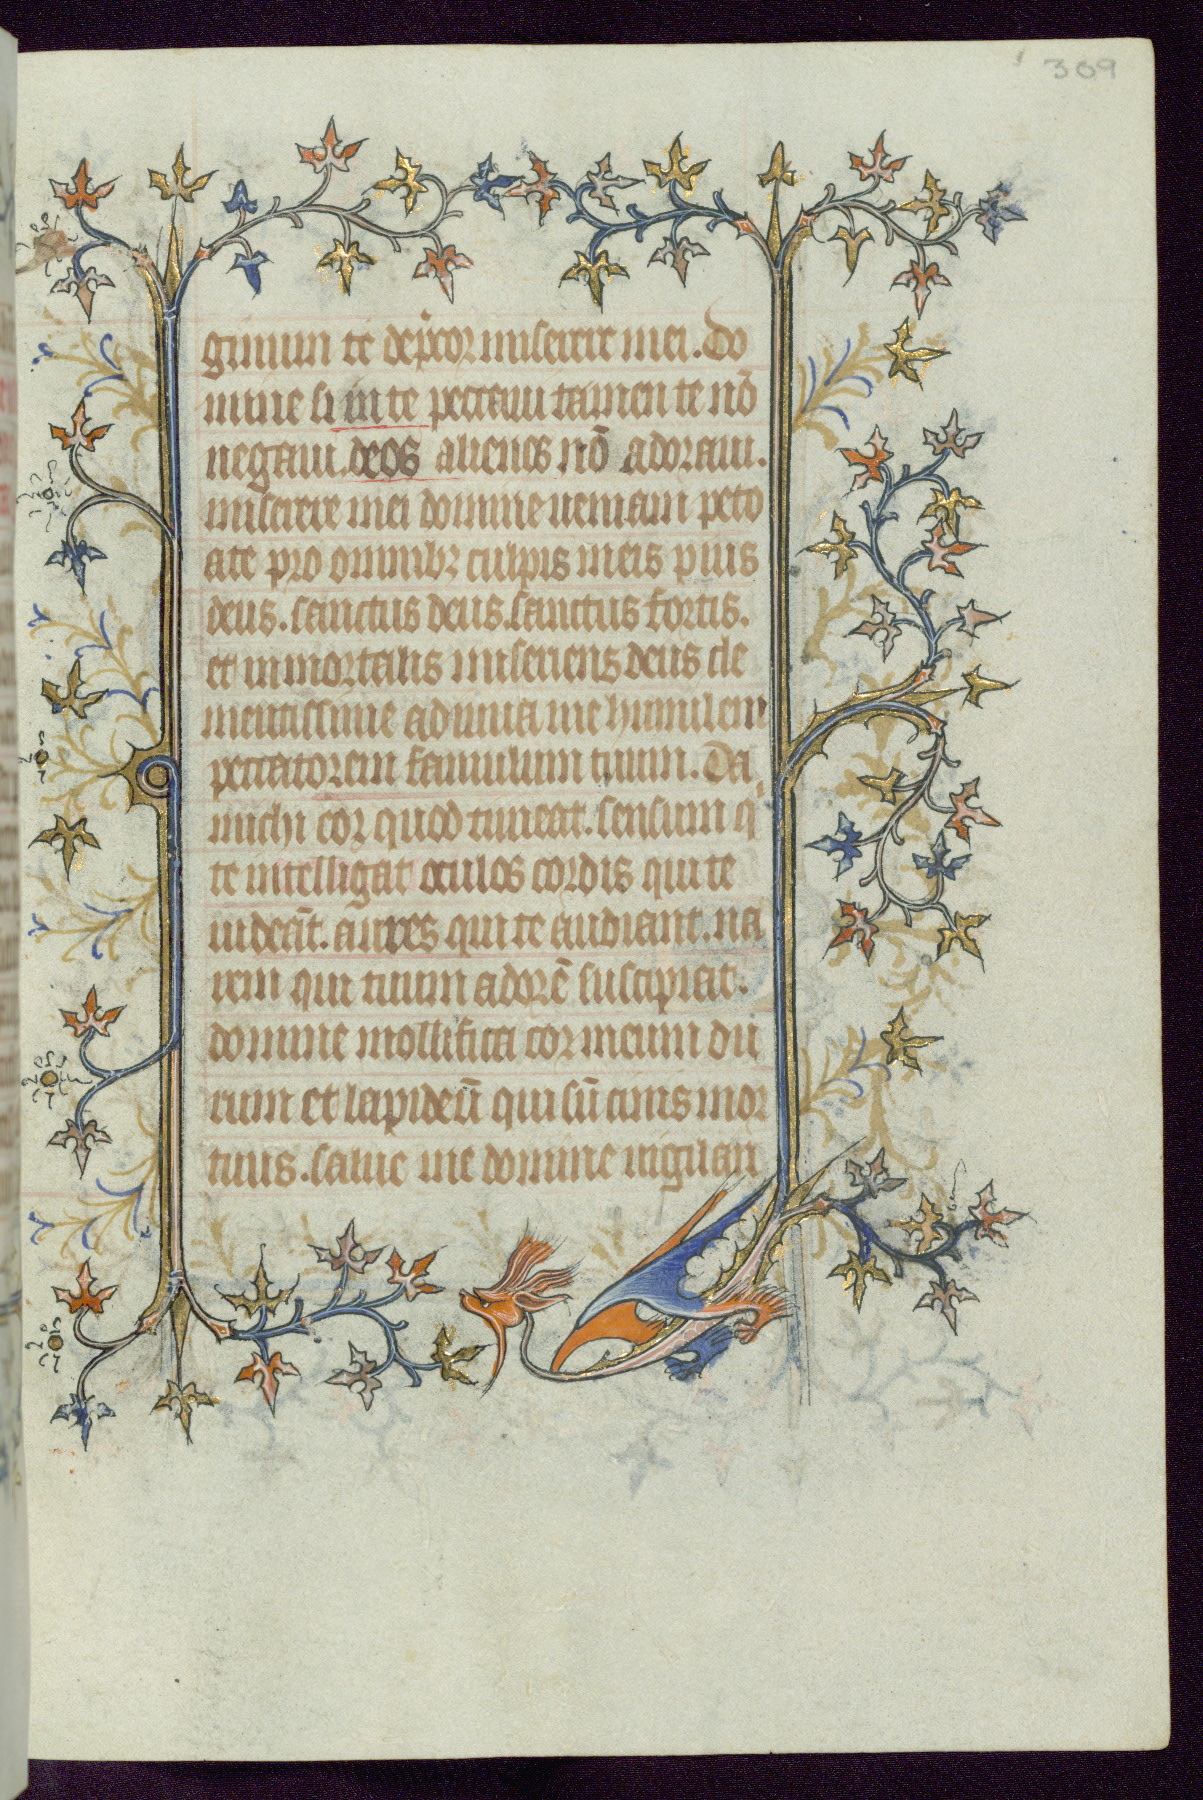 309
ginum te dep̄cor miserere mei. Do
mine si in te peccaui tamen te nō
negaui. deos alienos nō adoraui.
miserere mei domine ueniam peto
ate pro omnibꝫ culpis meis pius
deus. sanctus deus. sanctus fortis.
et inmortalis miseriens deus cle
mentissime adiuua me humilem
peccatorem famulum tuum. Da
michi cor quod timeat. sensum qⁱ
te intelligat oculos cordis qui te
uideāt. aures qui te audiant. na
rem qui tuum adorē suscipiat.
domine mollifica cor meum du
rum et lapideū qui sū cinis mor
tuus. salue me domine uigilan